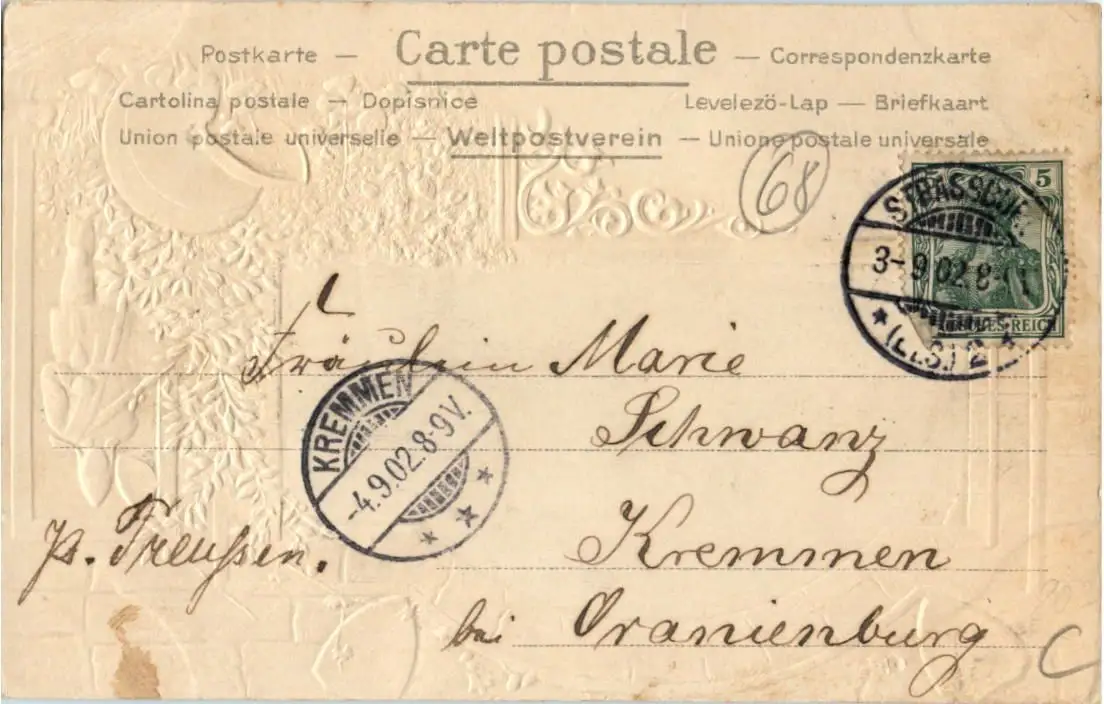 Postkarte — Carte postale — Correspondenzkarte
Cartolina postale — Dopisnice Levelezö-Lap — Briefkaart
Union postale universelle — Weltpostverein — Unione postale universale
68
5
STRASSBURG
3-9.02.8-
* (ELS.) 2 *
DEUTSCHES REICH
Fräulein Marie
Schwanz
KREMMEN
-4.9.02.8-9V.
* * *
Kremmen
Preußen.
bei Oranienburg
C